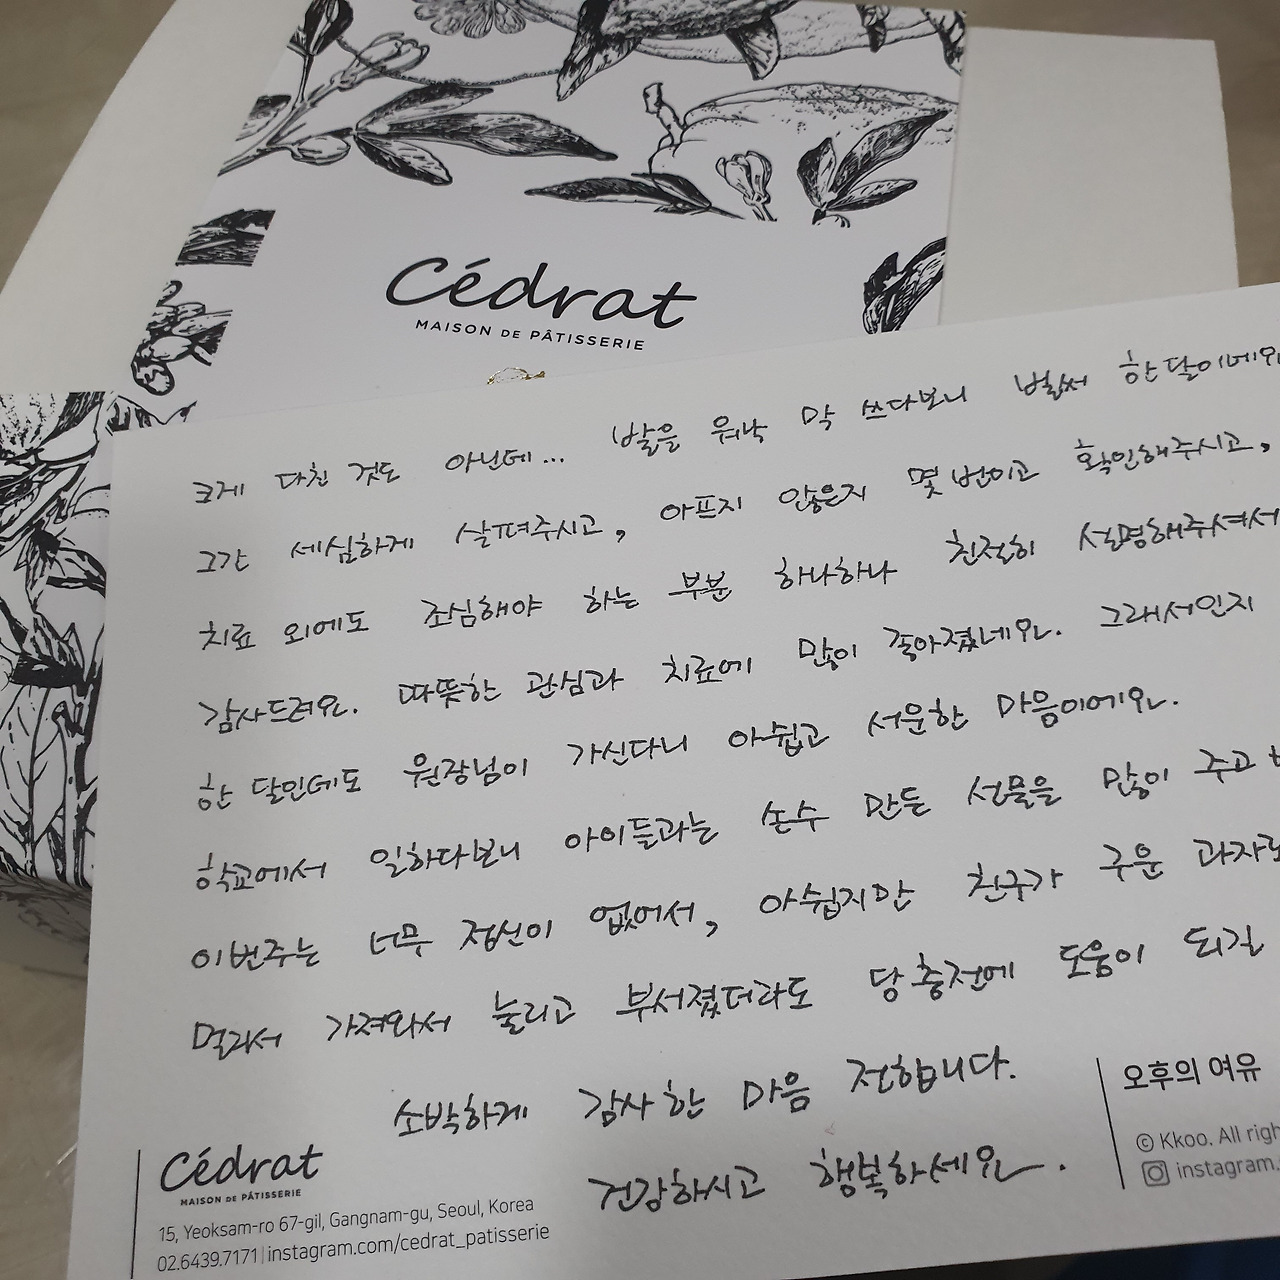 Cédrat
MAISON DE PÂTISSERIE
크게 다친 것도 아닌데... 발을 워낙 막 쓰다보니 벌써 한달이네요
그간 세심하게 살펴주시고, 아프지 않은지 몇 번이고 확인해주시고,
치료 외에도 조심해야 하는 부분 하나하나 친절히 설명해주셔서
감사드려요. 따뜻한 관심과 치료에 많이 좋아졌네요. 그래서인지
한 달인데도 원장님이 가신다니 아쉽고 서운한 마음이에요.
학교에서 일하다보니 아이들과는 손수 만든 선물을 많이 주고
이번주는 너무 정신이 없어서, 아쉽지만 친구가 구운 과자로
멀라서 가져와서 눌리고 부서졌더라도 당 충전에 도움이 되길
소박하게 감사한 마음 전합니다.
건강하시고 행복하세요.
Cédrat
MAISON DE PÂTISSERIE
15, Yeoksam-ro 67-gil, Gangnam-gu, Seoul, Korea
02.6439.7171 | instagram.com/cedrat_patisserie
오후의 여유
© Kkoo. All righ
instagram.